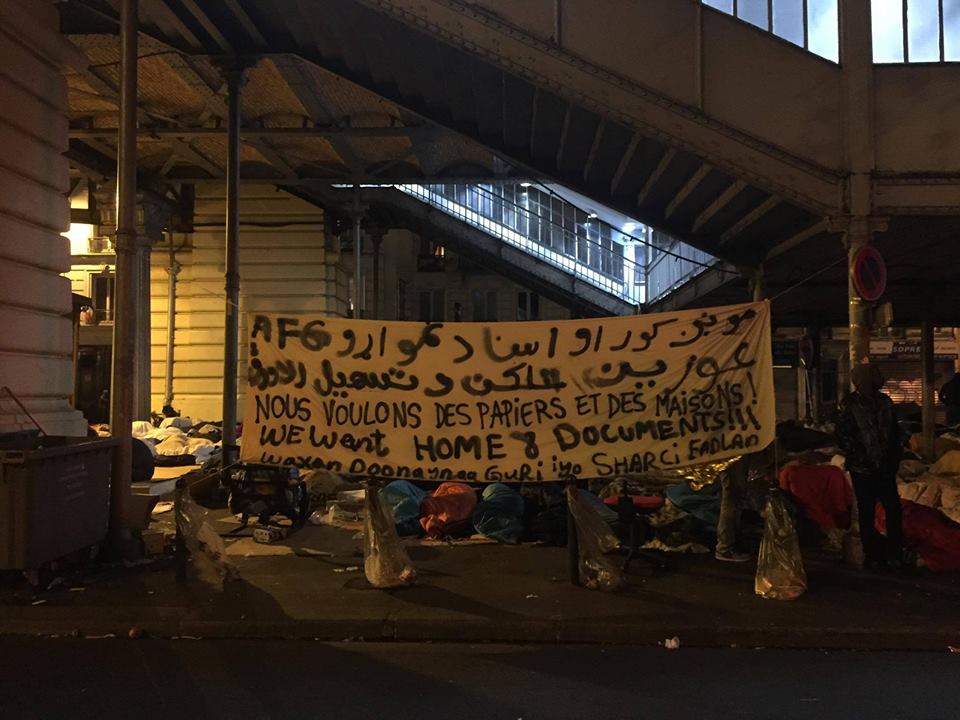 مونږ کور او اسناد غواړو AFG
عوزين و تسهيل
NOUS VOULONS DES PAPIERS ET DES MAISONS!
WE WANT HOME & DOCUMENTS!!!
WAXAN DOONAYNAA GURI iyo SHARCI FADLAN
SOPRE